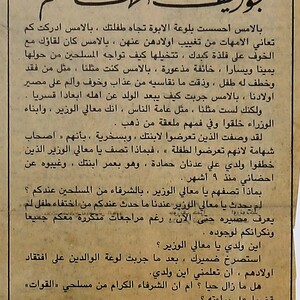 بالامس احسست بلوعة الابوة تجاه طفلتك ، بالامس ادركت كم
تعاني الامهات من تغييب اولادهن عنهن ، بالامس كان لقاؤك مع
الخوف على فلذة كبدك . تتخيلها كيف تواجه المسلحين من حولها
يمينا ويسارا ، خائفة مذعورة ، بالامس كنت مثلنا ، مثل من فقد
وخطف له طفل ، وذقت ما نقاسيه من عذاب وخوف والم على مصير
اولادنا ، بالامس جربت كيف يبعد الولد عن اهله ابعادا قسريا ،
ولكنك لست مثلنا ، مثل عامة الناس ، انك معالي الوزير ، وابناء
الوزراء خلقوا وفي فمهم ملعقة من ذهب .
لقد وصفت الذين تعرضوا لابنتك ، وبسخرية ، بانهم ، اصحاب
شهامة لانهم تعرضوا لطفلة » ، فبماذا تصف يا معالي الوزير الذين
خطفوا ولدي علي عدنان حمادة ، وهو بعمر ابنتك ، وغيبوه عن
احضاني منذ ٩ اشهر .
بماذا تصفهم يا معالي الوزير ، بالشرفاء من المسلحين عندكم ؟
لم يحدث يا معالي الوزير عندنا ما حدث عندكم من اختفاء طفل لم
يعرف مصيره حتى الآن ، رغم مراجعات متكررة معكم جميعا
ونكرانكم لوجوده
اين ولدي يا معالي الوزير ؟
استصرخ ضميرك ، بعد ما جربت لوعة الوالدين على افتقاد
اولادهم ، ان تعلمني اين ولدي
هل ما زال حيا ؟ ام ان الشرفاء الكرام من مسلحي «القوات»